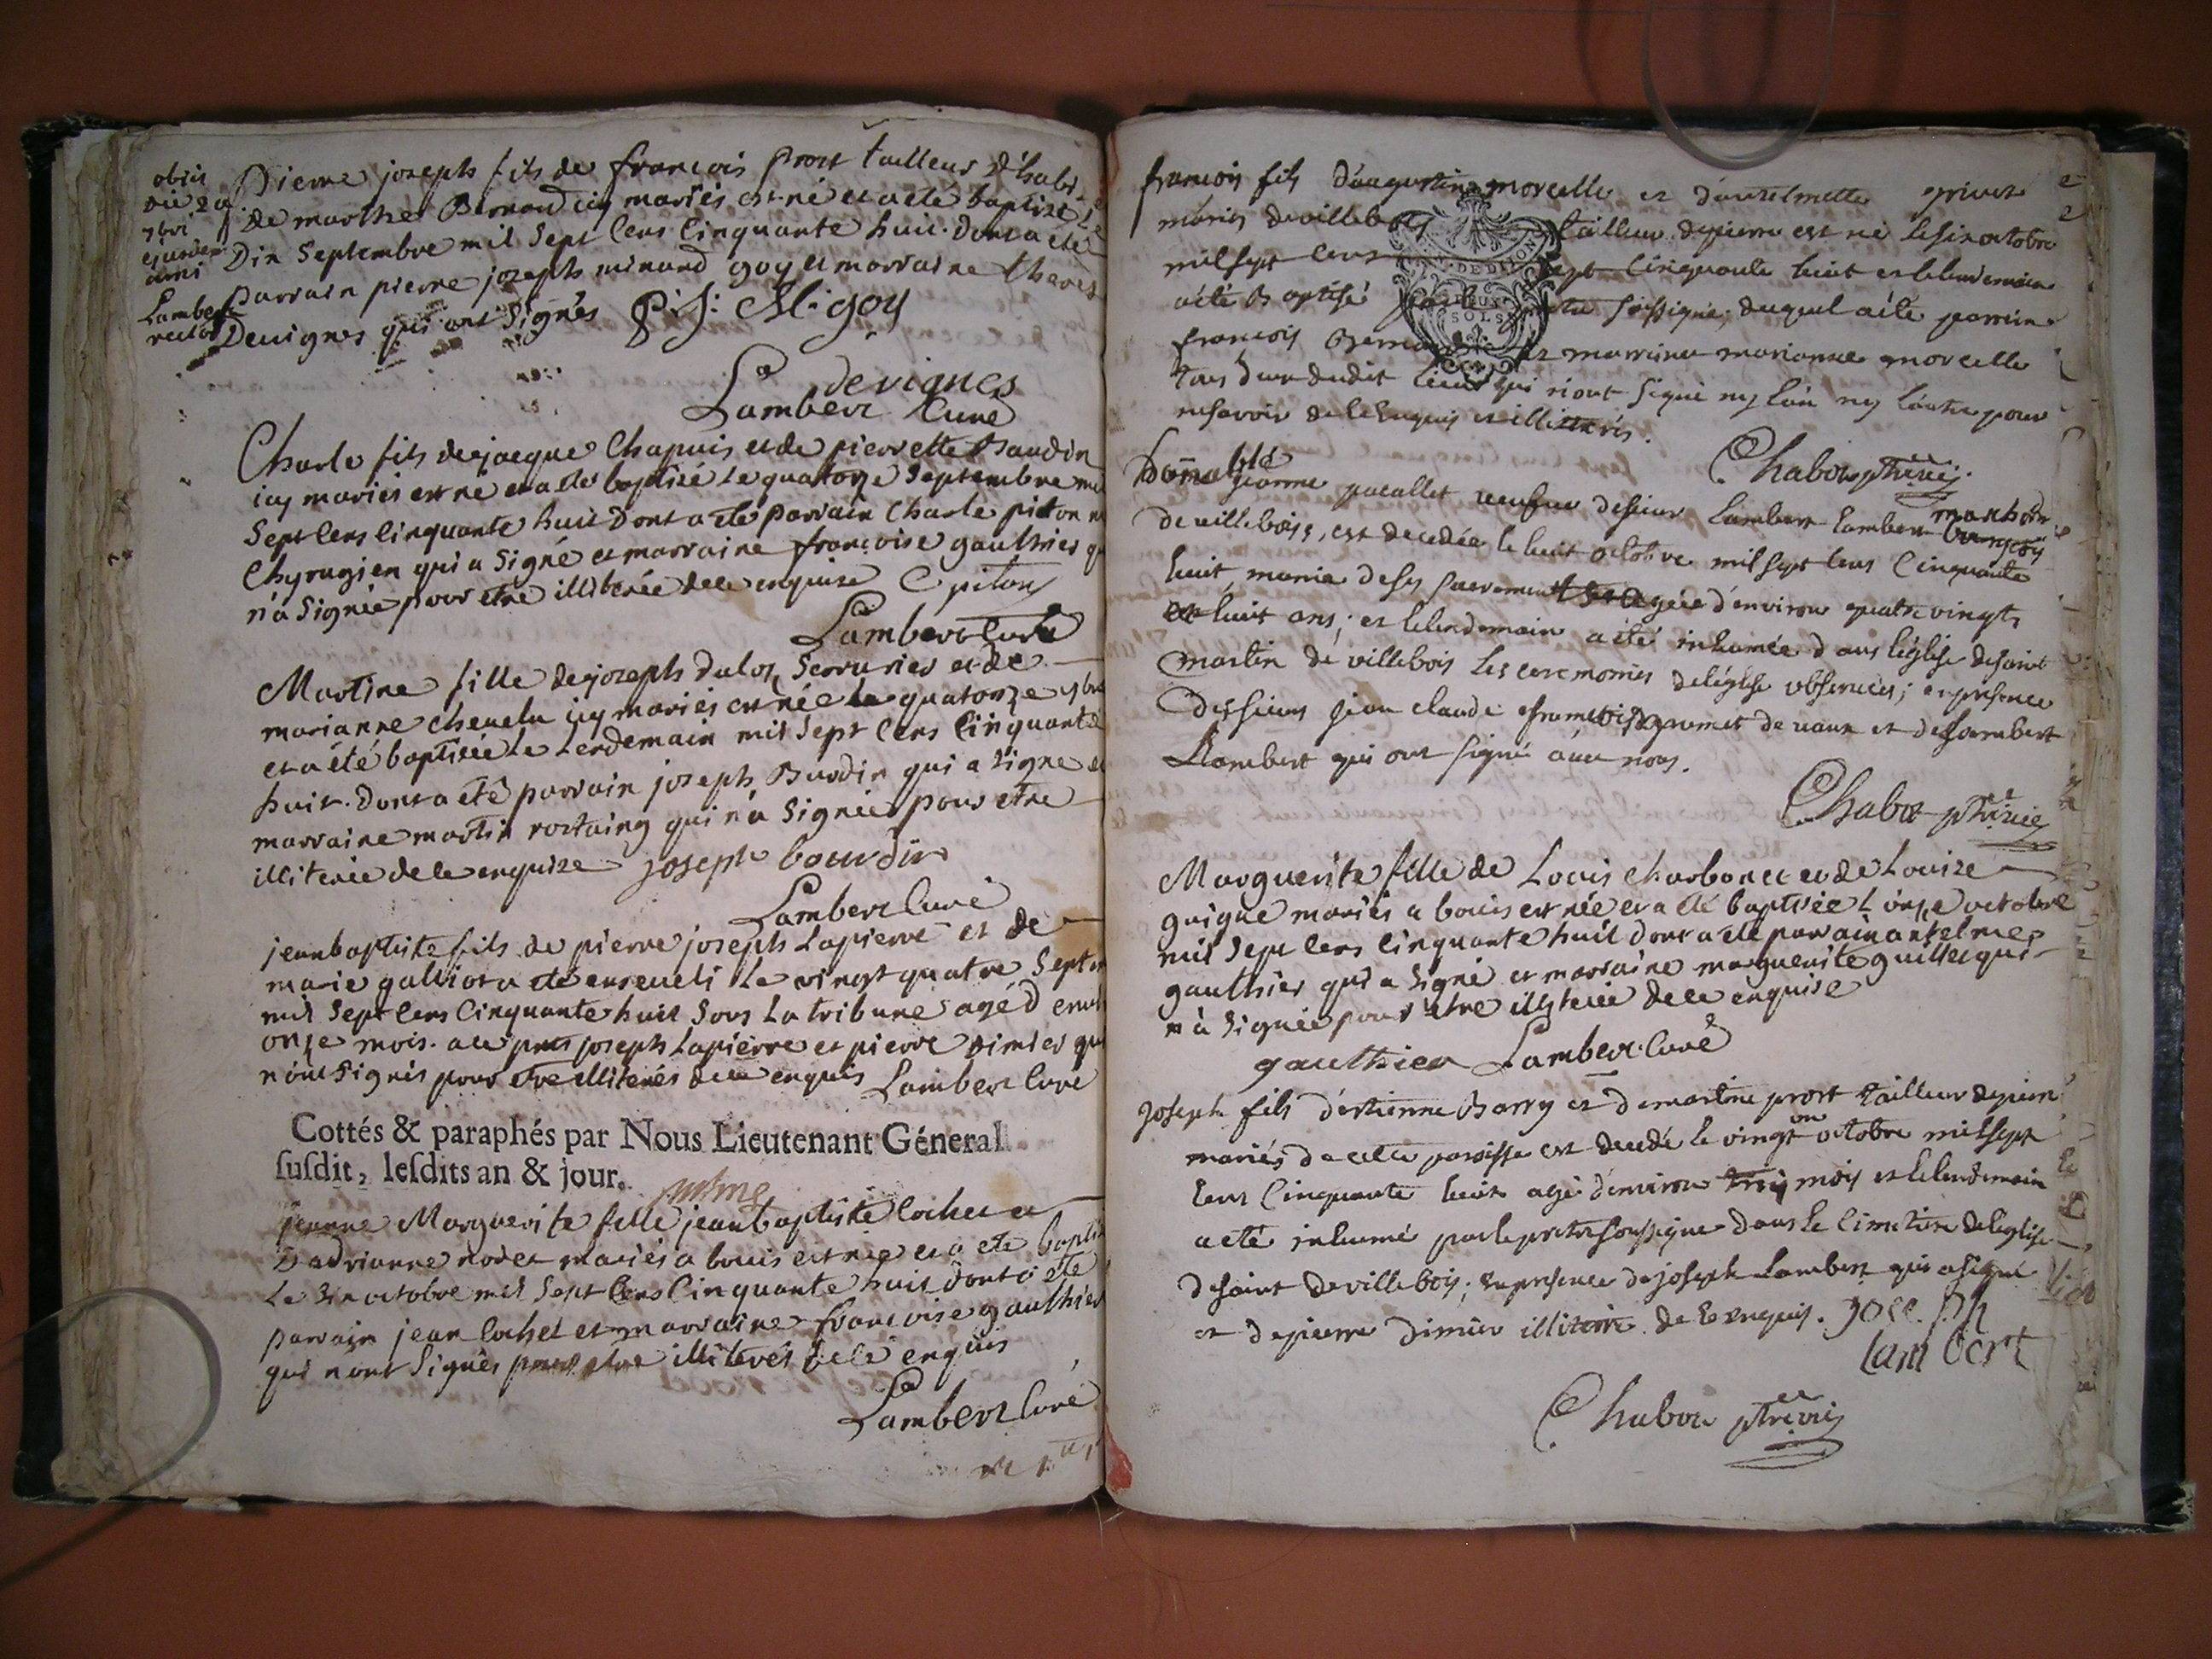 obiit
die 20
7bri
ejusdem
anni
Lambert
rector
Pierre joseph fils de francois Prost tailleur d'habi
de marthe Bernard icy mariés est né et a été baptisé le
Dix Septembre mil Sept Cens Cinquante huit. dont a été
Parrain pierre joseph minand goy et marraine therese
Devignes qui ont Signés P: J: M: goy
devignes
Lambert Curé
Charle fils de jacque Chapuis et de pierrette Baudin
icy mariés est né et a été baptisé Le quatorze Septembre mil
Sept Cens Cinquante huit Dont a été Parrain Charle piton
Chyrugien qui a Signé et marraine françoise gauthier qui
n'a Signée pour etre illiterée de ce enquise C piton
Lambert Curé
Martine fille de joseph dulos Serrurier et de
marianne chevelu icy mariés est née le quatorze 7bre
et a été baptisée Le Lendemain mil Sept Cens Cinquante
huit. dont a été parrain joseph Burdin qui a signé et
marraine martin rostaing qui n'a Signée pour etre
illiterée de ce enquise joseph bourdin
Lambert Curé
jean baptiste fils de pierre joseph Lapierre et de
marie galliot a été enseveli Le vingt quatre Septe
mil Sept Cens Cinquante huit Sous La tribune agé d envi
onze mois. ace pnts joseph Lapierre et pierre Dimier qui
n'ont Signés pour etre illiterés de ce enquis Lambert Curé
Cottés & paraphés par Nous Lieutenant Géneral
ſuſdit, leſdits an & jour.
jeanne Marguerite fille jean baptiste Cochet et
D adrianne nodet mariés a bouis est née et a été bapti
Le Six octobre mil Sept Cens Cinquante huit dont a été
parrain jean Cochet et marraine françoise gauthier
qui n'ont Signés pour etre illiterés de ce enquis
Lambert Curé
francois fils d'augustin morcelle et d'antelmette privet
mariés de villebois tailleur de pierre est né le six octobre
mil sept cens sept cinquante huit et le lendemain
a été Baptisé soussigné; duquel a été parrain
francois Bernard et marrine marianne morcelle
tous deux dudit lieu qui n'ont signé ny l'un ny l'autre pour
ne savoir de ce enquis et illitterés.
Chabou ptre vic.
honnable
Jeanne pacallet veufve de sieur Lambert Lambert bourgeois marchand
de villebois, est decedée le huit octobre mil sept cens cinquante
huit, munie de ses sacrements agée d'environ quatre vingt
huit ans; et le lendemain a été inhumée dans l'église de saint
martin de villebois les ceremonies de l'église observées; en presence
des sieurs jean claude francois gromet de vaux et de Lambert
Lambert qui ont signé avec nous.
Chabou ptre vic
Marguerite fille de Louis Charbonet et de Louise
guigue mariés a bouis est née et a été baptisée L'onze octobre
mil Sept Cens Cinquante huit dont a été parrain antelme
gauthier qui a Signé et marraine marguerite guillet qui
n'a Signée pour etre illiterée de ce enquise
gauthier Lambert Curé
Joseph fils d'estienne Barry et de martine prost tailleur de pierre
mariés de cette paroisse est decedé le vingt on octobre mil sept
cens cinquante huit agé d'environ trois mois et le lendemain
a été inhumé par le pretre soussigné dans le cimetiere de l'eglise
de saint de villebois; en presence de joseph Lambert qui a signé
et de pierre Dimier illiteré de ce enquis. joseph
lambert
Chabou ptre vic